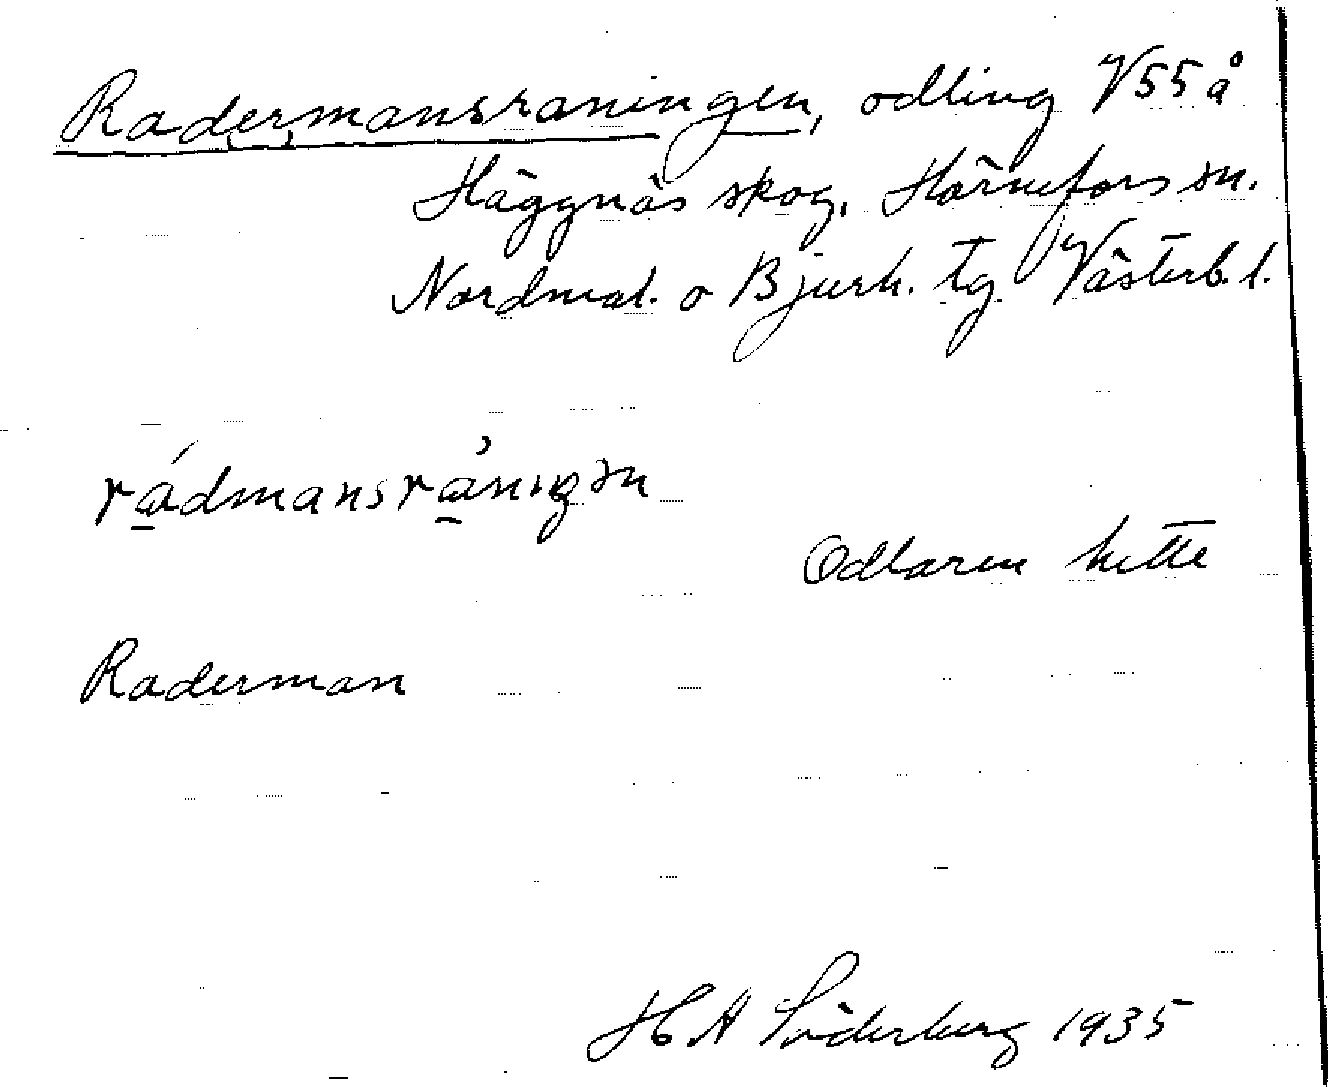 Radermansraningen, odling V55 å
Häggnäs skog. Hörnefors sn.
Nordmal. o Bjurh. tg Västerb. l.
rádmansrániŋən
Odlaren hette
Raderman
H A Söderberg 1935